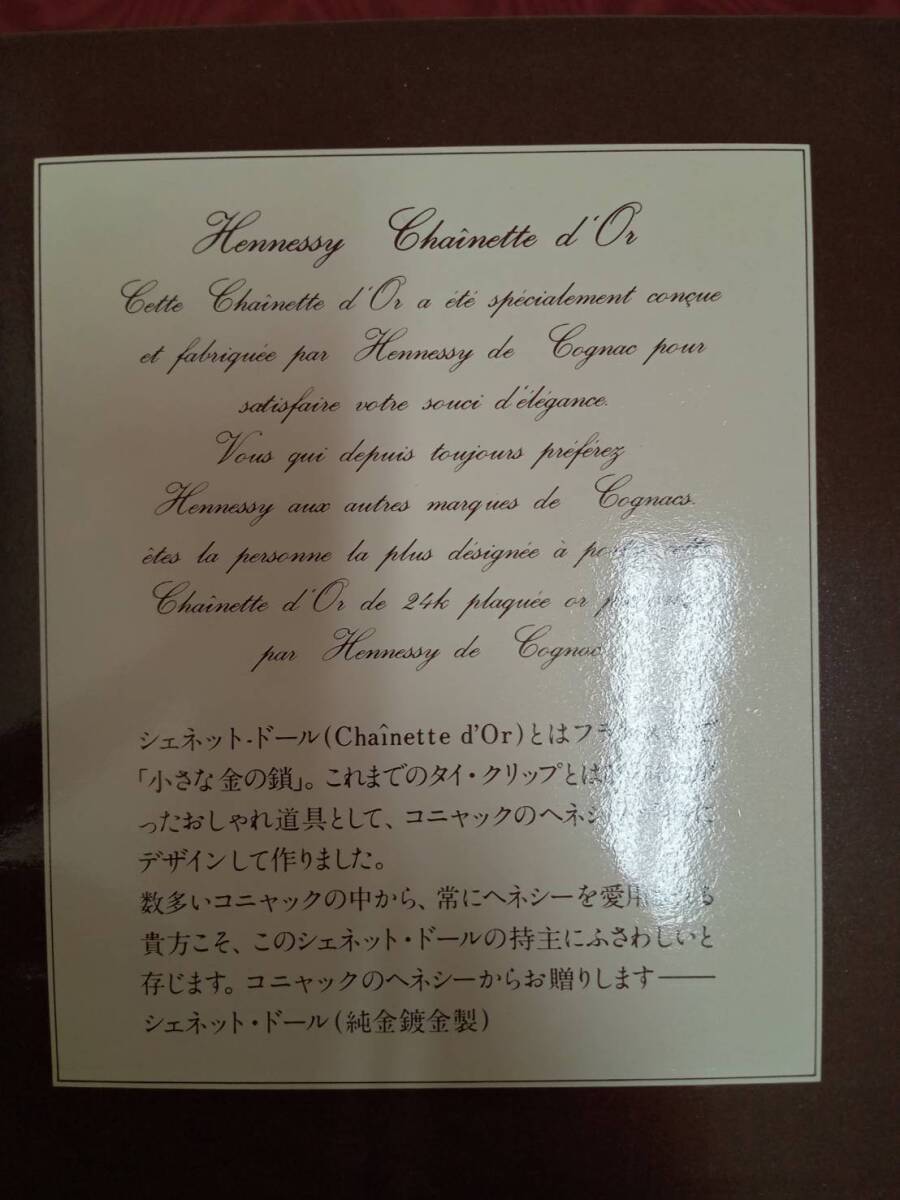 Hennessy Chaînette d'Or
Cette Chaînette d'Or a été spécialement conçue
et fabriquée par Hennessy de Cognac pour
satisfaire votre souci d'élégance.
Vous qui depuis toujours préférez
Hennessy aux autres marques de Cognacs.
êtes la personne la plus désignée à porter cette
Chaînette d'Or de 24k plaquée or
par Hennessy de Cognac
シェネット-ドール(Chaînette d'Or)とはフランス語で
「小さな金の鎖」。これまでのタイ・クリップとは
ったおしゃれ道具として、コニャックのヘネシーが
デザインして作りました。
数多いコニャックの中から、常にヘネシーを愛用
貴方こそ、このシェネット・ドールの持主にふさわしいと
存じます。コニャックのヘネシーからお贈りします——
シェネット・ドール(純金鍍金製)